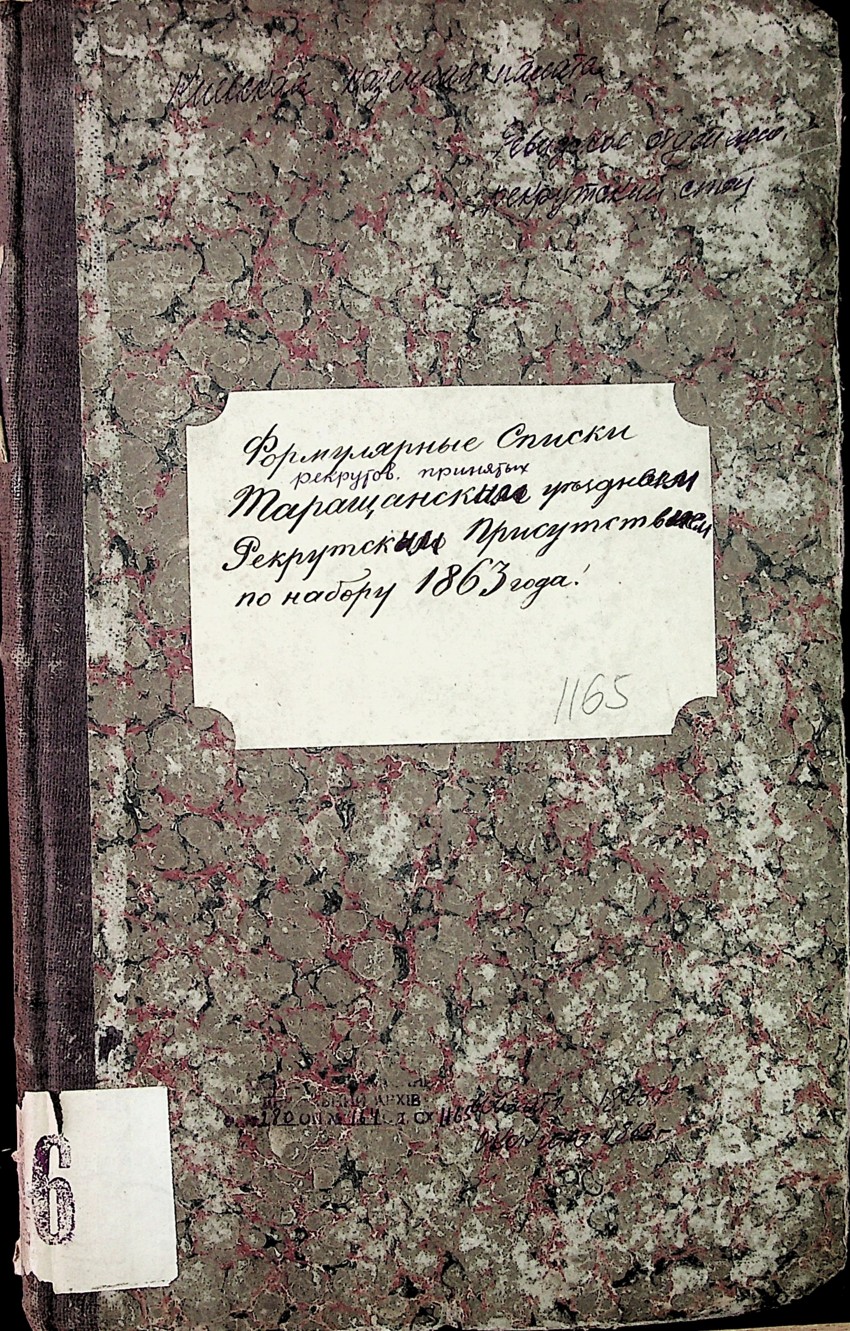 Киевская казенная палата
рекрутский стол
Формулярные Списки
рекрутов, принятых
Таращанским уѣздным
Рекрутским Присутствием
по набору 1863 года.
1165
АРХІВ
280 ОП № СХ 1165
1863 г
6